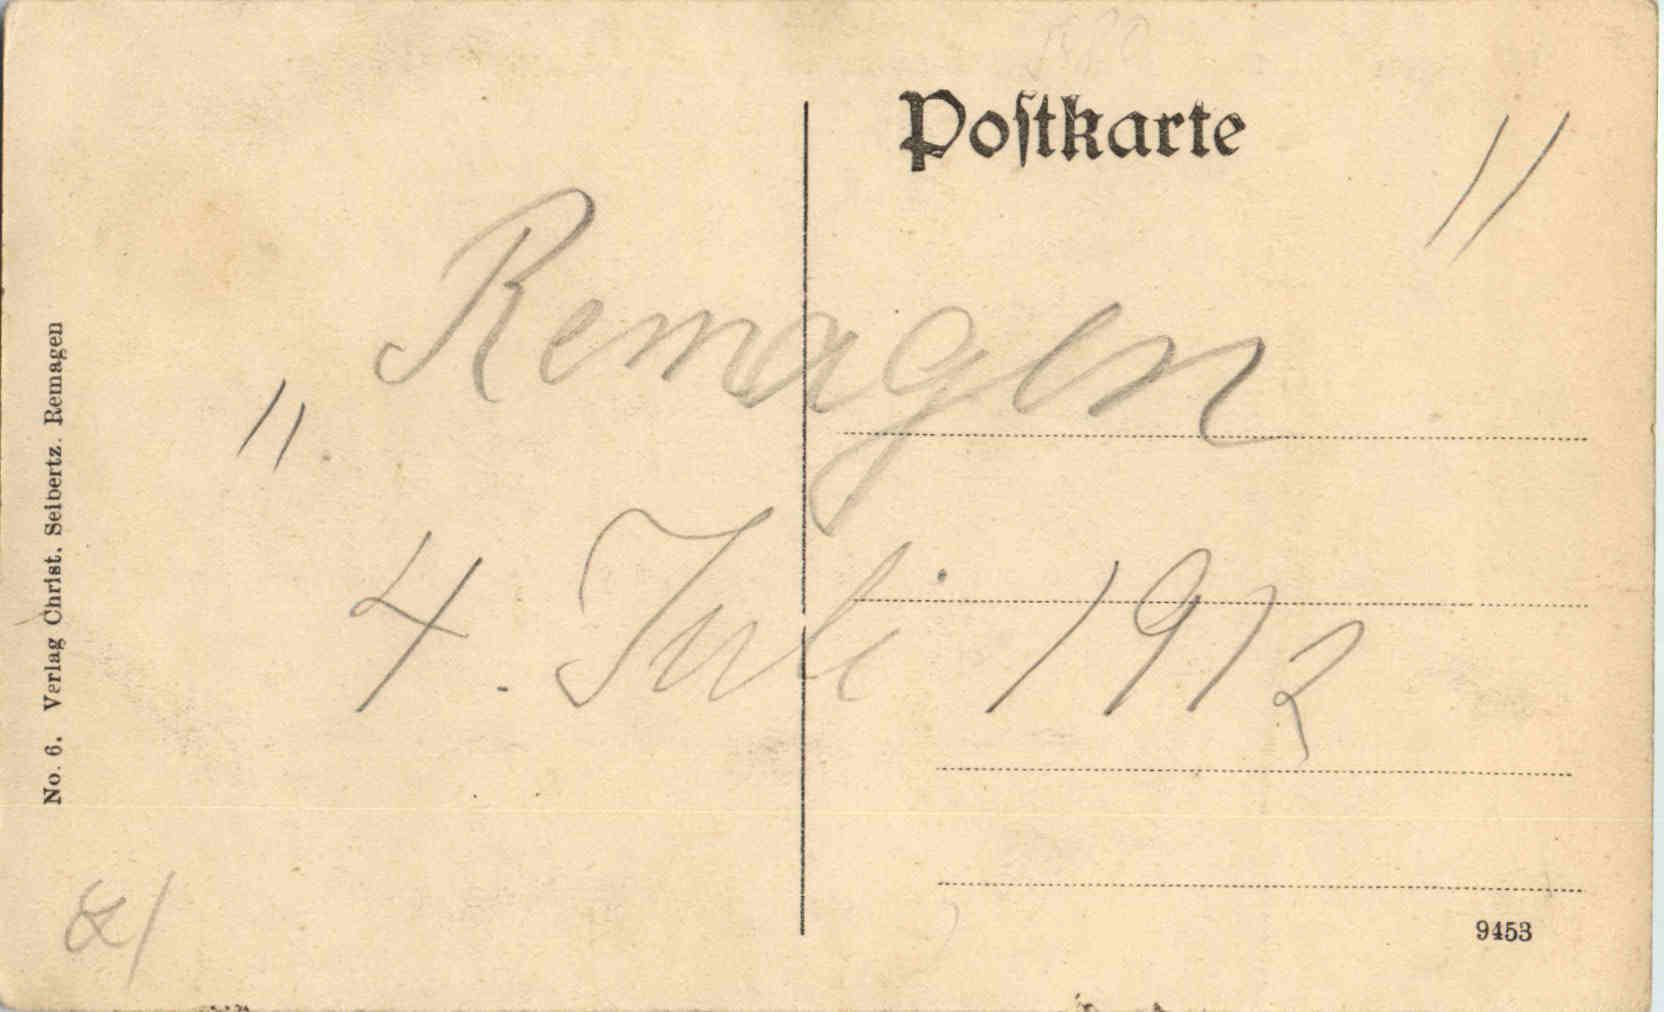 Poſtkarte
11
Remagen
11
4. Juli 1912
No. 6. Verlag Christ. Seibertz. Remagen
9453